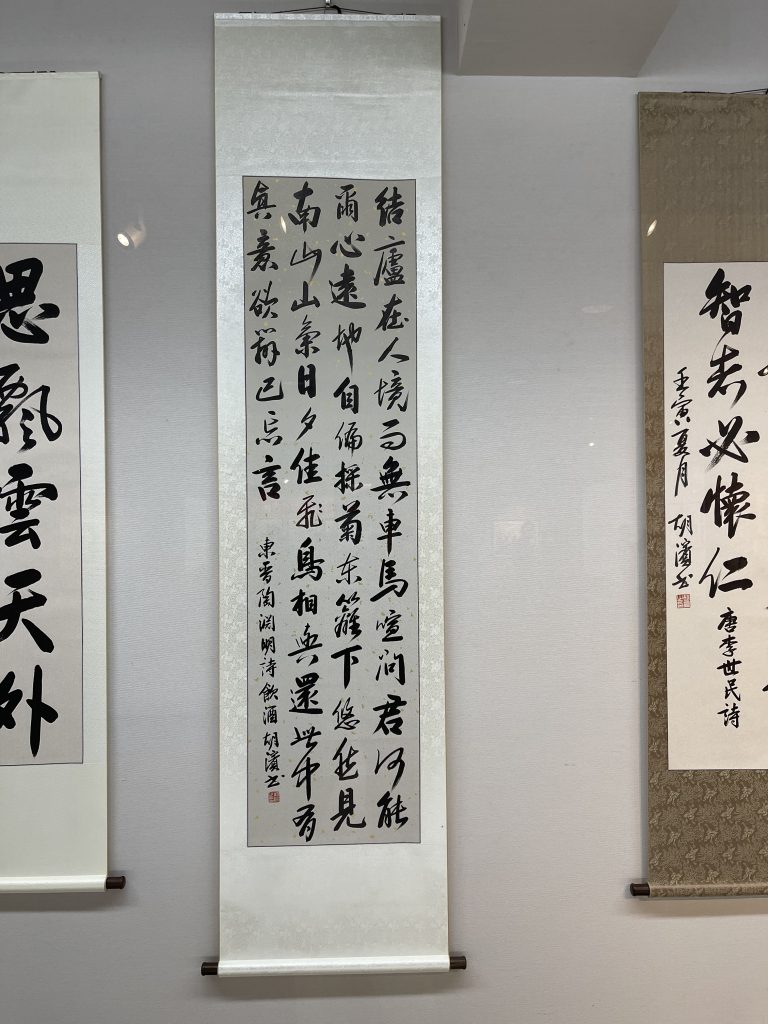 智者必懷仁
唐李世民詩
壬寅夏月 胡濱書
結廬在人境而無車馬喧問君何能
爾心遠地自偏採菊東籬下悠然見
南山山氣日夕佳飛鳥相與還此中有
真意欲辨已忘言
東晉陶淵明詩飲酒 胡濱書
思飄雲天外